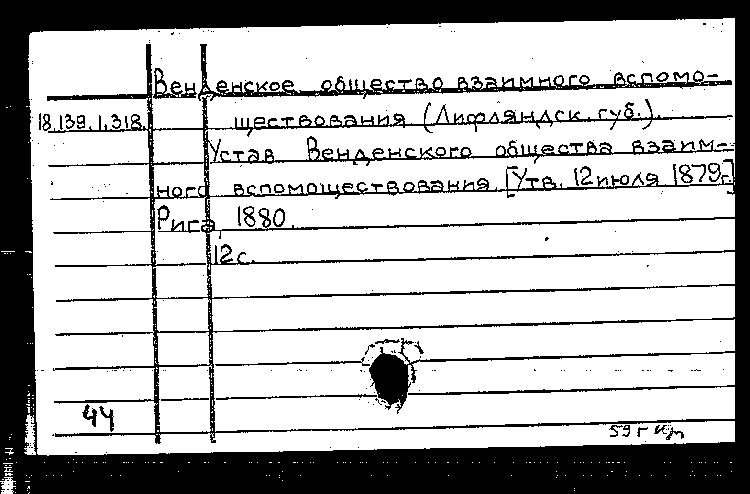 Венденское общество взаимного вспомо-
18.139.1.318. ществования (Лифляндск. губ.).
Устав Венденского общества взаим-
ного вспомоществования [Утв. 12 июля 1879г.]
Рига, 1880.
12 с.
44
59 г